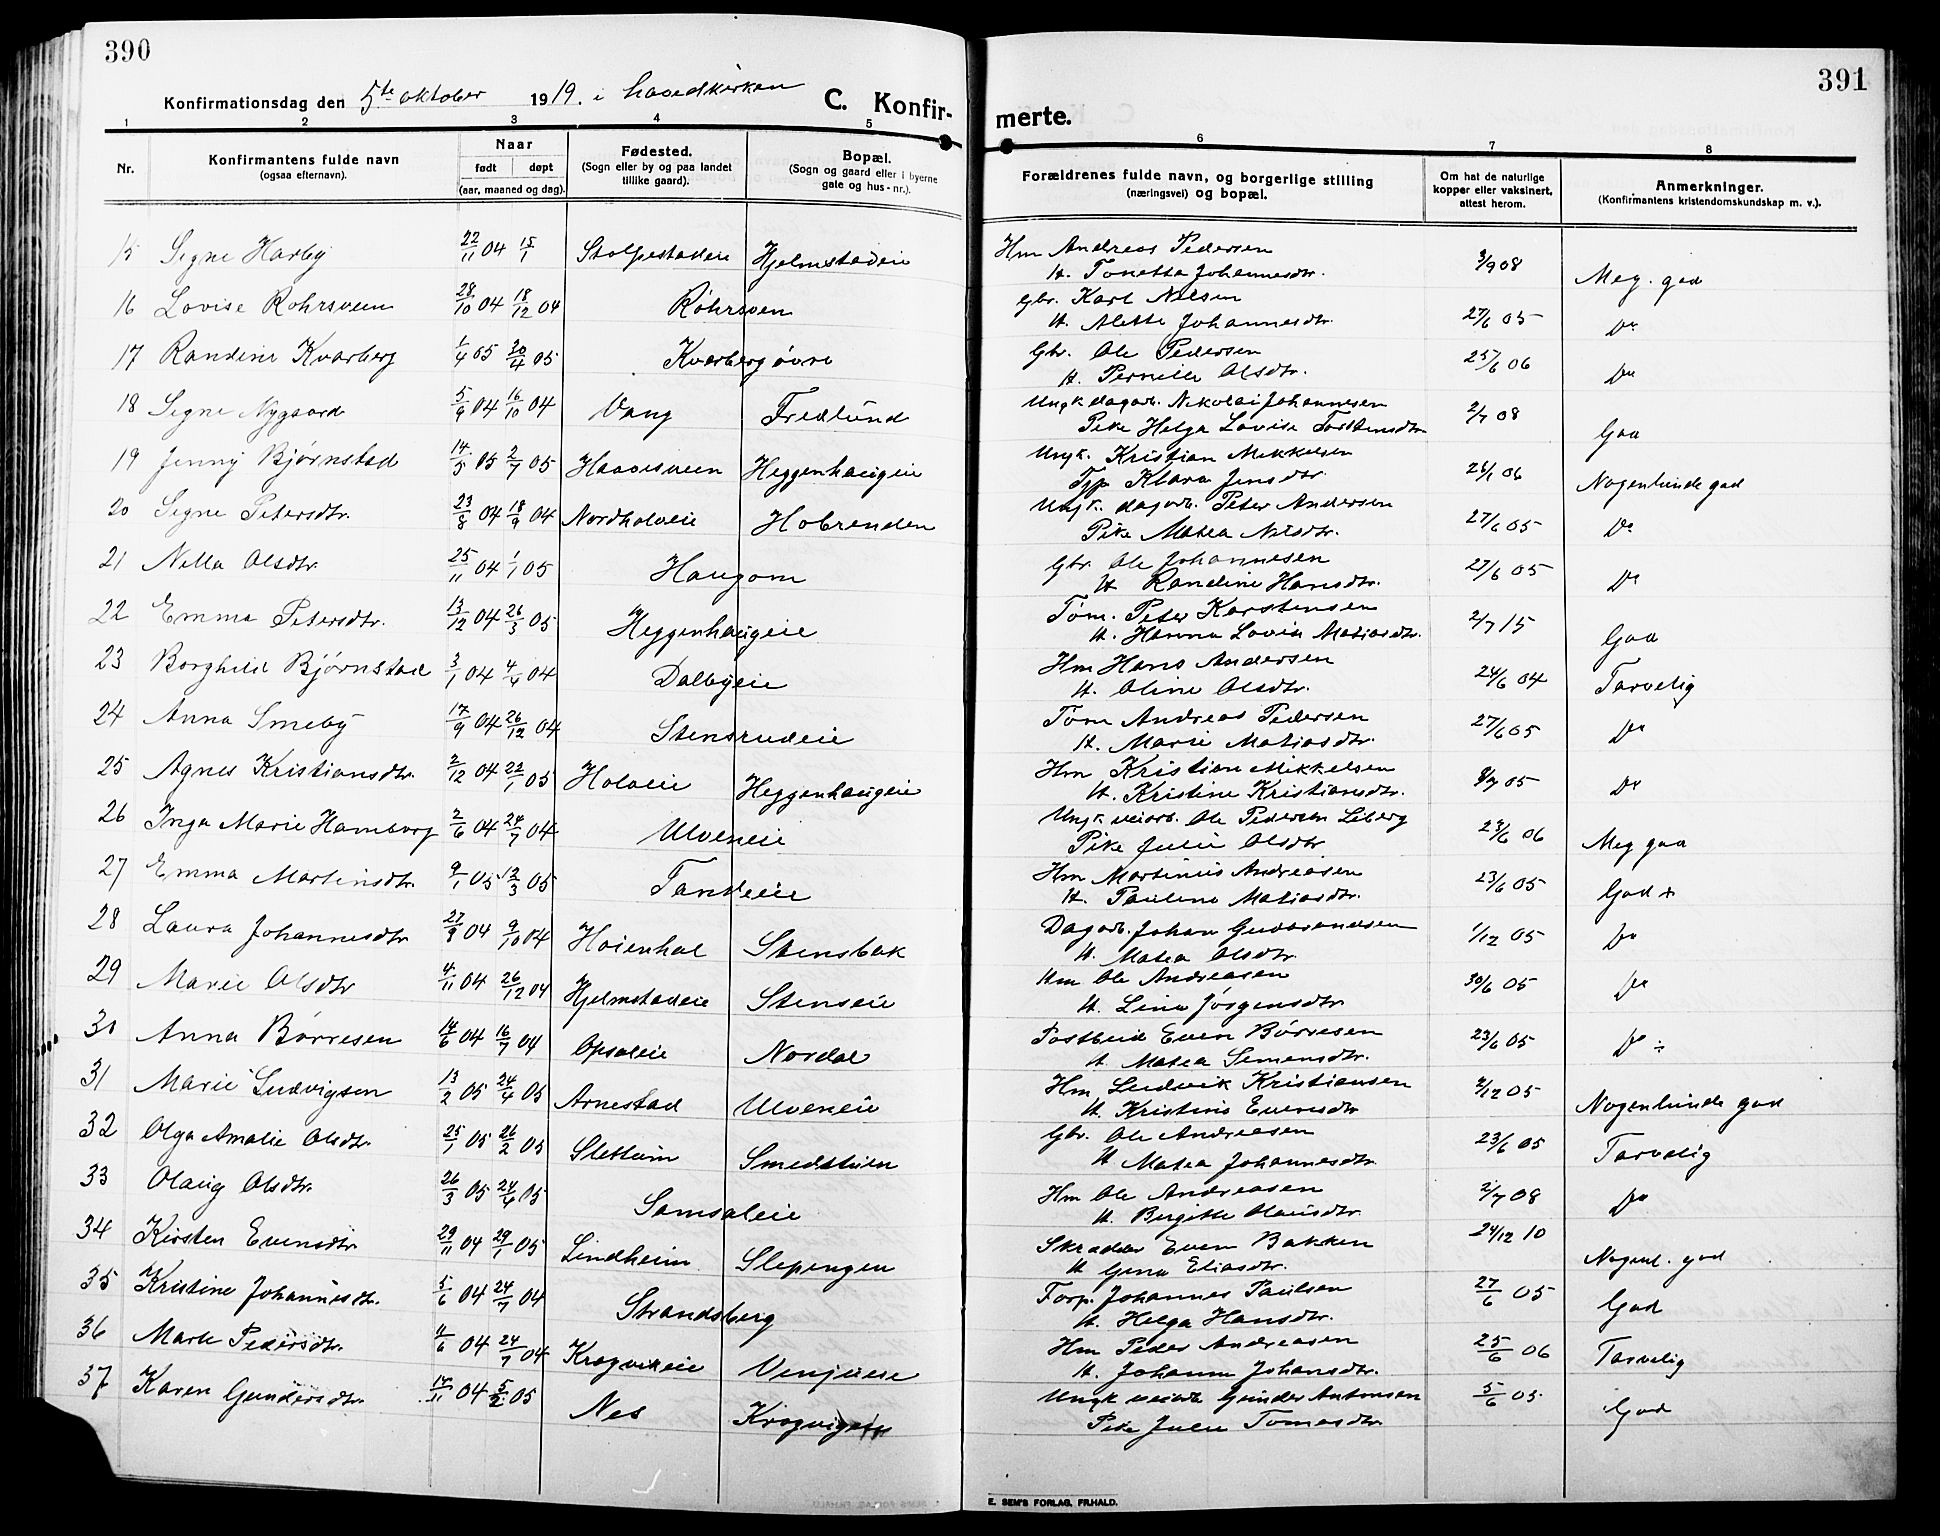 390
Konfirmationsdag den 5te oktober 1919. i hovedkirken
C. Konfir-
1 2 3 4 5
Nr.
Konfirmantens fulde navn
(ogsaa efternavn).
Naar
født døpt
(aar, maaned og dag).
Fødested.
(Sogn eller by og paa landet
tillike gaard).
Bopæl.
(Sogn og gaard eller i byerne
gate og hus-nr.).
15 Signe Harby 22/11 04 15/1 Stolpestadeie Hjelmstadeie
16 Lovise Rohrsveen 28/10 04 18/12 04 Rohrsven
17 Randine Kvarberg 1/4 05 30/4 05 Kvarberg øvre
18 Signe Nygaard 5/9 04 16/10 04 Vang Fredlund
19 Jenny Bjørnstad 14/5 05 2/7 05 Haavesveen Heggenhaugeie
20 Signe Petersdtr. 23/8 04 18/9 04 Nordholoeie Hobrenden
21 Nilla Olsdtr. 25/11 04 1/1 05 Haugom
22 Emma Petersdtr. 13/12 04 26/3 05 Heggenhaugeie
23 Borghild Bjørnstad 3/1 04 4/4 04 Dalbyeie
24 Anna Smeby 17/9 04 26/12 04 Stensrudeie
25 Agnes Kristiansdtr. 2/12 04 22/1 05 Holoeie Heggenhaugeie
26 Inga Marie Hamborg 2/6 04 24/7 04 Ulveneie
27 Emma Martinsdtr. 9/1 05 12/3 05 Tandeie
28 Laura Johannesdtr 27/8 04 9/10 04 Hoienhol Stensbak
29 Marie Olsdtr 4/11 04 26/12 04 Hjelmstadeie Stenseie
30 Anna Børresen 14/6 04 16/7 04 Opsaleie Nordal
31 Marie Ludvigsen 13/2 05 24/4 05 Arnestad Ulveneie
32 Olga Amalie Olsdtr. 25/1 05 26/2 05 Slettum Smedstuen
33 Olaug Olsdtr. 26/3 05 24/6 05 Samsaleie
34 Kirsten Evensdtr. 29/11 04 29/1 05 Lindheim Slepengen
35 Kristine Johannesdtr. 5/6 04 24/7 04 Strandsberg
36 Marte Pedersdtr. 4/6 04 24/7 04 Krogvikeie
37 Karen Gundersdtr. 14/11 04 5/2 05 Nes
391
merte.
6 7 8
Forældrenes fulde navn, og borgerlige stilling
(næringsvei) og bopæl.
Om hat de naturlige
kopper eller vaksinert,
attest herom.
Anmerkninger.
(Konfirmantens kristendomskundskap m. v.).
Hm Andreas Pedersen
H. Tonetta Johannesdtr. 3/9 08 Meg. god
Gbr. Karl Nilsen
H. Alette Johannesdtr. 27/6 05 Do
Gbr. Ole Pedersen
H. Pernille Olsdtr. 25/6 06 Do
Ungk dagarb. Nikolai Johannesen
Pike Helga Lovise Torstensdtr 2/7 08 Goa
Ungk. Kristian Mikkelsen
Tjp Klara Jensdtr 26/6 06 Nogenlunde god
Ungk. dagarb. Peter Andersen
Pike Matea Nilsdtr. 27/6 05 Do
Gbr. Ole Johannesen
H. Randine Hansdtr. 27/6 05 Do
Tøm. Peter Karstensen
H. Hanna Lovise Matiasdtr. 2/7 15 God
Hm Hans Andersen
H. Oline Olsdtr. 24/6 04 Tarvelig
Tøm Andreas Pedersen
H. Marie Matiasdtr. 27/6 05 Do
Hm Kristian Mikkelsen
H. Kristine Kristiansdtr. 8/7 05 Do
Ungk veiarb. Ole Pedersen Liberg
Pike Julie Olsdtr 23/6 06 Meg god
Hm Martinius Andreasen
H. Pauline Matiasdtr. 23/6 05 God +
Dagarb. Johan Gudbrandsen
H. Matea Olsdtr. 1/12 05 Do
Hm Ole Andreasen
H. Lina Jørgensdtr. 30/6 05 Do
Postbud Even Børresen
H. Matea Simensdtr. 23/6 05 Do ÷
Hm Ludvik Kristiansen
H. Kristine Evensdtr 2/12 05 Nogenlunde god
Gbr. Ole Andreasen
H. Matea Johannesdtr. 23/6 05 Tarvelig
Hm Ole Andreasen
H. Birgitte Olausdtr. 2/7 08 Do
Skrædder Even Bakken
H. Gina Eliasdtr. 24/12 10 Nogenl. god
Forp. Johannes Paulsen
H. Helga Hansdtr. 27/6 05 God
Hm Peder Andreasen
H. Johanne Johansdtr. 25/6 06 Tarvelig
Ungk veiarb Gunder Antonsen
Pike Julie Tomasdtr. 5/6 05 God
E. SEM'S FORLAG, FR.HALD.